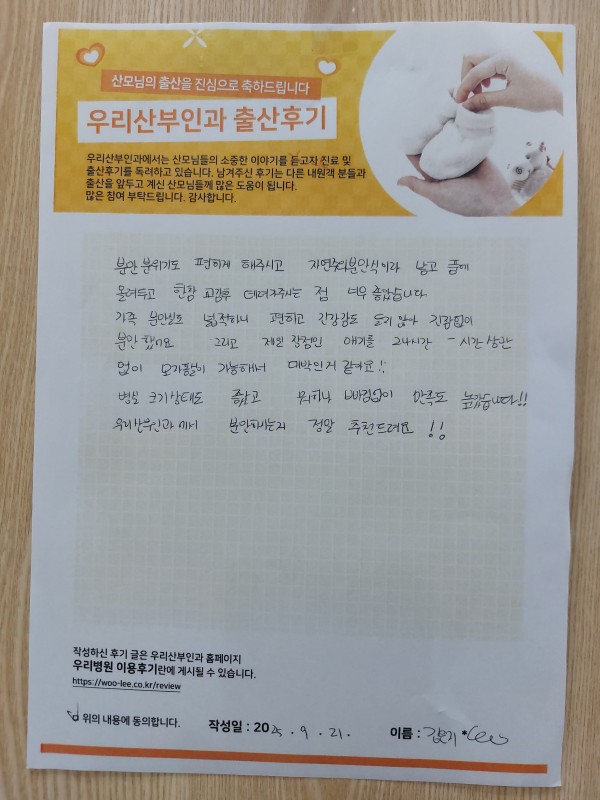 산모님의 출산을 진심으로 축하드립니다
우리산부인과 출산후기
우리산부인과에서는 산모님들의 소중한 이야기를 듣고자 진료 및
출산후기를 독려하고 있습니다. 남겨주신 후기는 다른 내원객 분들과
출산을 앞두고 계신 산모님들께 많은 도움이 됩니다.
많은 참여 부탁드립니다. 감사합니다.
분만 분위기도 편하게 해주시고 자연주의분만식이라 낳고 품에
올려두고 한참 교감후 데려가주시는 점 너무 좋았습니다
가족 분만실도 넓직하니 편하고 긴장감도 들지 않아 긴장없이
분만 했어요 그리고 제일 장점인 애기를 24시간 시간 상관
없이 모자동실이 가능해서 대박인거 같아요!!
병실 크기상태도 좋았고 뭐하나 빠짐없이 만족도 높았습니다!!
우리산부인과에서 분만하시는거 정말 추천드려요 !!
작성하신 후기 글은 우리산부인과 홈페이지
우리병원 이용후기란에 게시될 수 있습니다.
https://woo-lee.co.kr/review
위의 내용에 동의합니다. 작성일 : 2025. 9. 21. 이름 :